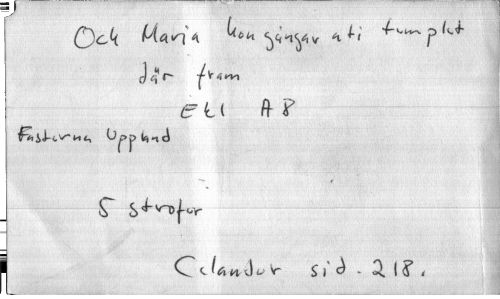 Och Maria hon gångar ati templet
där fram
Ekl A8
Fasterna Uppland
5 strofer
Celander sid. 218.